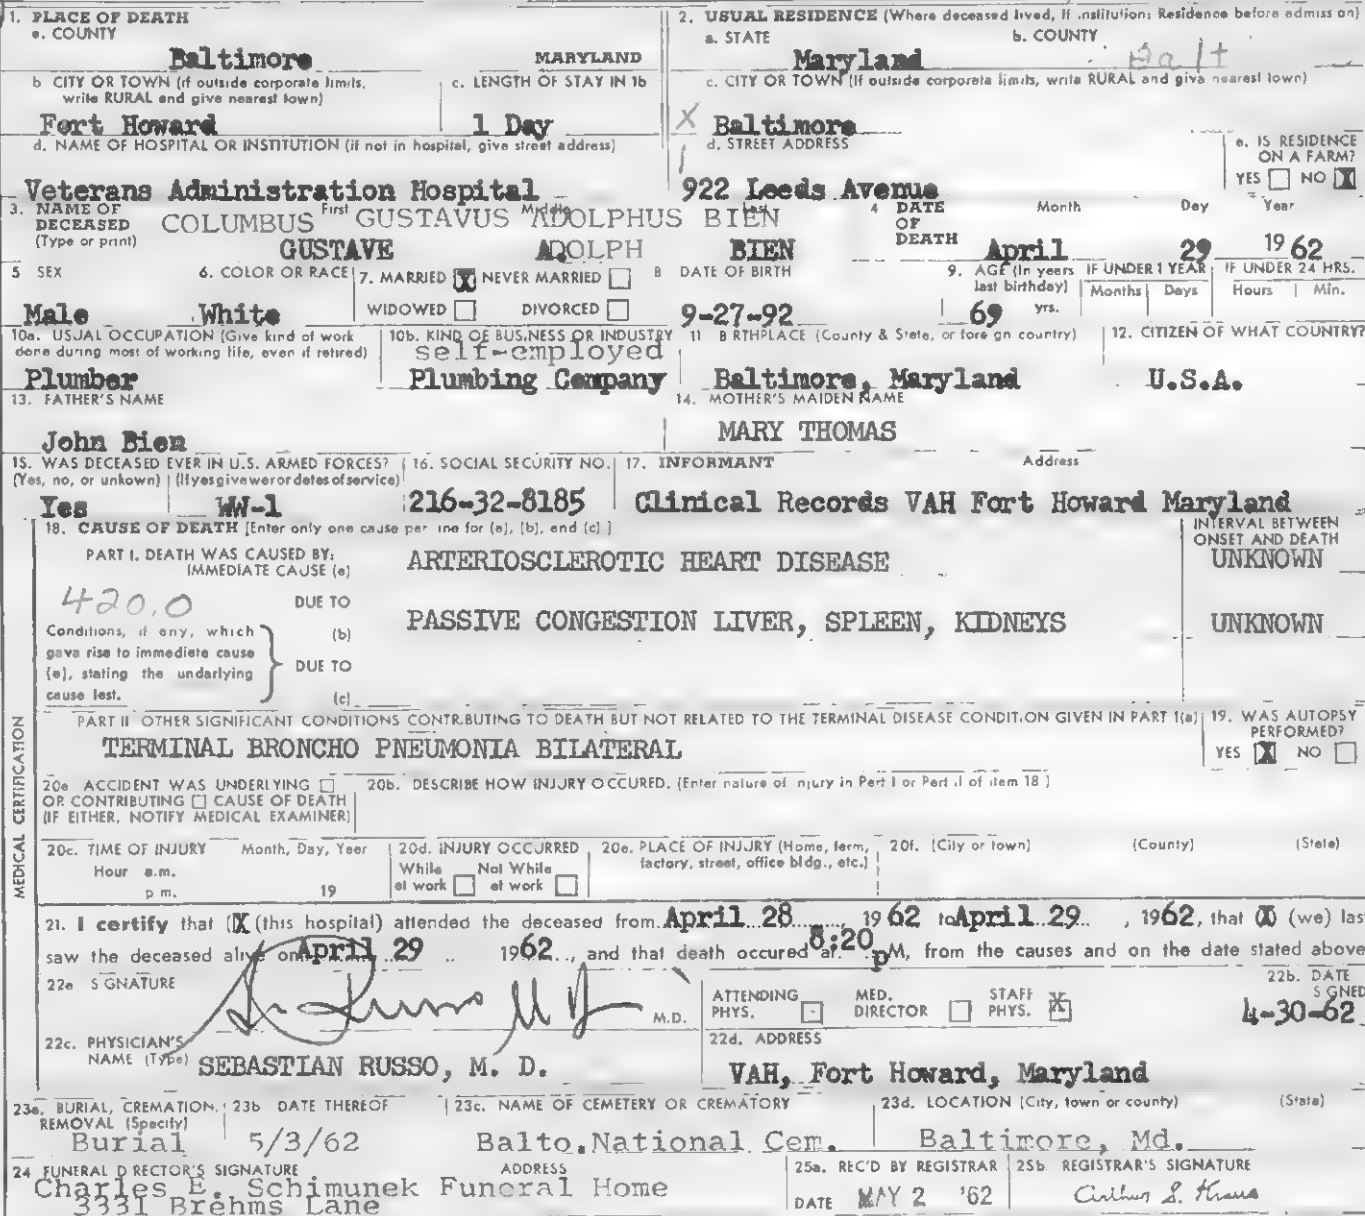 1. PLACE OF DEATH
a. COUNTY
Baltimore MARYLAND
b CITY OR TOWN (if outside corporate limits, write RURAL and give nearest town)
Fort Howard
c. LENGTH OF STAY IN 1b
1 Day
d. NAME OF HOSPITAL OR INSTITUTION (if not in hospital, give street address)
Veterans Administration Hospital
2. USUAL RESIDENCE (Where deceased lived, If institution: Residence before admission)
a. STATE
Maryland
b. COUNTY
Balt
c. CITY OR TOWN (If outside corporate limits, write RURAL and give nearest town)
X Baltimore
d. STREET ADDRESS
922 Leeds Avenue
e. IS RESIDENCE ON A FARM?
YES NO X
3. NAME OF DECEASED (Type or print)
First Middle Last
COLUMBUS GUSTAVUS ADOLPHUS BIEN
GUSTAVE ADOLPH BIEN
4 DATE OF DEATH
Month Day Year
April 29 1962
5 SEX
Male
6. COLOR OR RACE
White
7. MARRIED X NEVER MARRIED
WIDOWED DIVORCED
8 DATE OF BIRTH
9-27-92
9. AGE (In years last birthday)
69 yrs.
IF UNDER 1 YEAR
Months Days
IF UNDER 24 HRS.
Hours Min.
10a. USUAL OCCUPATION (Give kind of work done during most of working life, even if retired)
Plumber
10b. KIND OF BUSINESS OR INDUSTRY
self-employed
Plumbing Company
11 BIRTHPLACE (County & State, or foreign country)
Baltimore, Maryland
12. CITIZEN OF WHAT COUNTRY?
U.S.A.
13. FATHER'S NAME
John Bien
14. MOTHER'S MAIDEN NAME
MARY THOMAS
15. WAS DECEASED EVER IN U.S. ARMED FORCES?
(Yes, no, or unkown) (If yes give wer or dates of service)
Yes WW-1
16. SOCIAL SECURITY NO.
216-32-8185
17. INFORMANT Address
Clinical Records VAH Fort Howard Maryland
MEDICAL CERTIFICATION
18. CAUSE OF DEATH [Enter only one cause per line for (a), (b), and (c)]
INTERVAL BETWEEN ONSET AND DEATH
PART I. DEATH WAS CAUSED BY:
IMMEDIATE CAUSE (a) ARTERIOSCLEROTIC HEART DISEASE UNKNOWN
420.0
DUE TO
(b) PASSIVE CONGESTION LIVER, SPLEEN, KIDNEYS UNKNOWN
Conditions, if any, which gave rise to immediate cause (a), stating the underlying cause last.
DUE TO
(c)
PART II OTHER SIGNIFICANT CONDITIONS CONTRIBUTING TO DEATH BUT NOT RELATED TO THE TERMINAL DISEASE CONDITION GIVEN IN PART 1(a)
TERMINAL BRONCHO PNEUMONIA BILATERAL
19. WAS AUTOPSY PERFORMED?
YES X NO
20a ACCIDENT WAS UNDERLYING
OR CONTRIBUTING CAUSE OF DEATH
(IF EITHER, NOTIFY MEDICAL EXAMINER)
20b. DESCRIBE HOW INJURY OCCURED. (Enter nature of injury in Part I or Part II of item 18)
20c. TIME OF INJURY Month, Day, Year
Hour a.m.
p m. 19
20d. INJURY OCCURRED
While at work Not While at work
20e. PLACE OF INJURY (Home, farm, factory, street, office bldg., etc.)
20f. (City or town) (County) (State)
21. I certify that (X (this hospital) attended the deceased from April 28 1962 to April 29, 1962, that (X) (we) last
saw the deceased alive on April 29 1962, and that death occured at 8:20 pM, from the causes and on the date stated above
22a SIGNATURE
Russo MD
M.D.
ATTENDING PHYS. MED. DIRECTOR STAFF PHYS. X
22b. DATE SIGNED
4-30-62
22c. PHYSICIAN'S NAME (Type)
SEBASTIAN RUSSO, M. D.
22d. ADDRESS
VAH, Fort Howard, Maryland
23a. BURIAL, CREMATION, REMOVAL (Specify)
Burial
23b DATE THEREOF
5/3/62
23c. NAME OF CEMETERY OR CREMATORY
Balto.National Cem.
23d. LOCATION (City, town or county) (State)
Baltimore, Md.
24 FUNERAL DIRECTOR'S SIGNATURE ADDRESS
Charles E. Schimunek Funeral Home
3331 Brehms Lane
25a. REC'D BY REGISTRAR
DATE MAY 2 '62
25b. REGISTRAR'S SIGNATURE
Arthur S. Kraus